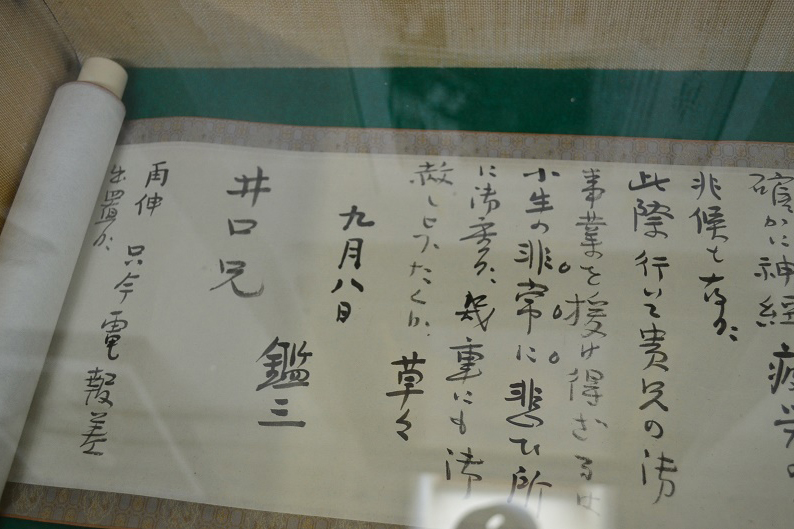 確かに神経疲労の
兆候も有之
此際行いて貴兄の御
事業を援け得ざるは
小生の非常に悲む所
に御座候 幾重にも御
赦し被下たく候
草々
九月八日
鑑三
井口兄
再伸 只今電報差
出置候